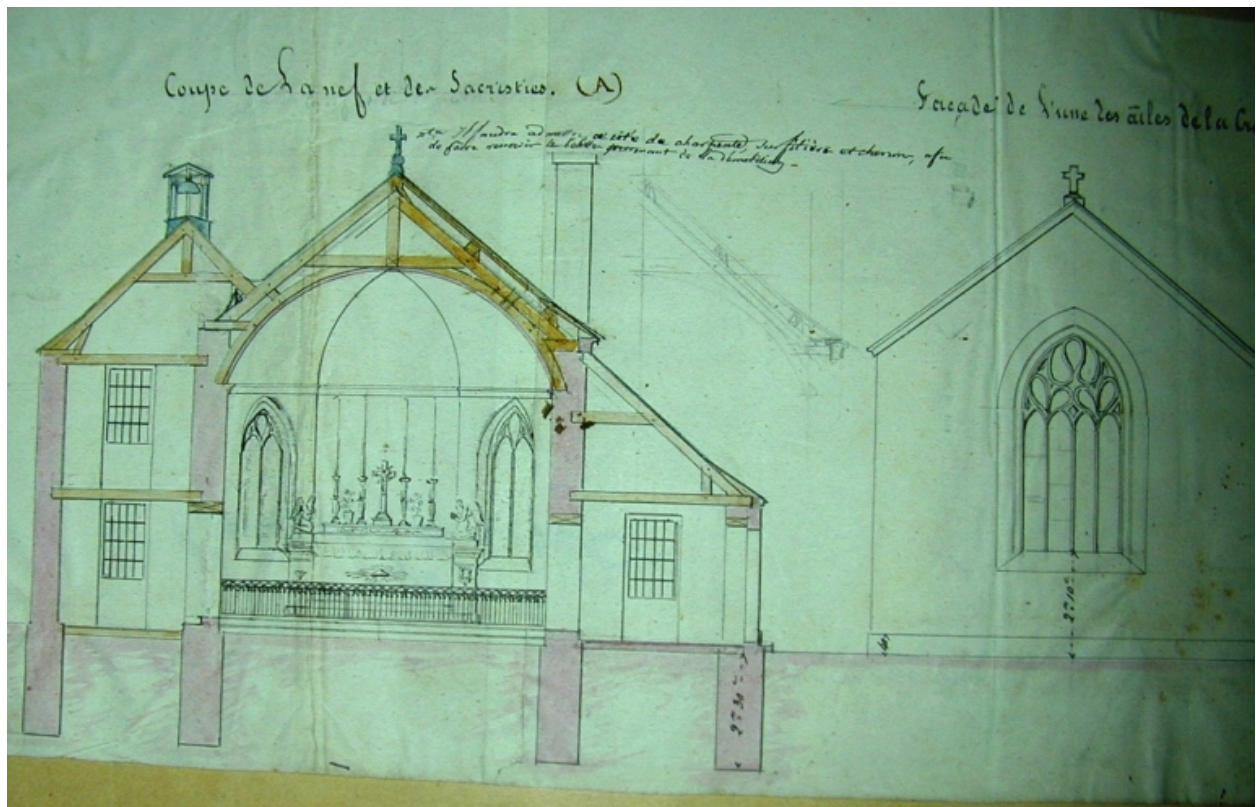 Coupe de La nef et des Sacristies. (A)
Façade de l'une des ailes de la
nta Il faudra ce côté de charpente, sur filière et chevron, afin
de faire resservir le provenant de la démolition -
2m 10c
2m 30c